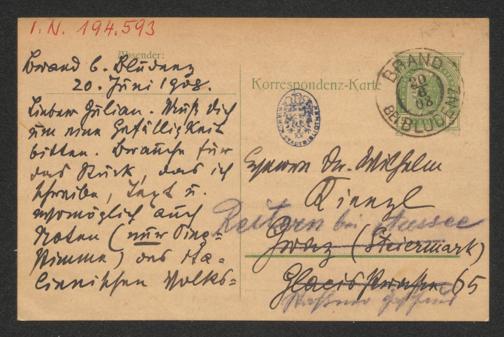 I.N. 194.593
Absender:
Brand b. Bludenz
20. Juni 1908.
Lieber Julian. Muß dich
um eine Gefälligkeit
bitten. Brauche für
das Stück, das ich
schreibe, Text u.
womöglich auch
Noten (nur Sing-
stimme) des ita-
lienischen Volks-
Korrespondenz-Karte
BRAND
20
6
08
BEI BLUDENZ
Herrn Dr. Wilhelm
Kienzl
Reitern bei Aussee
Graz (Steiermark)
Glacisstrasse 65